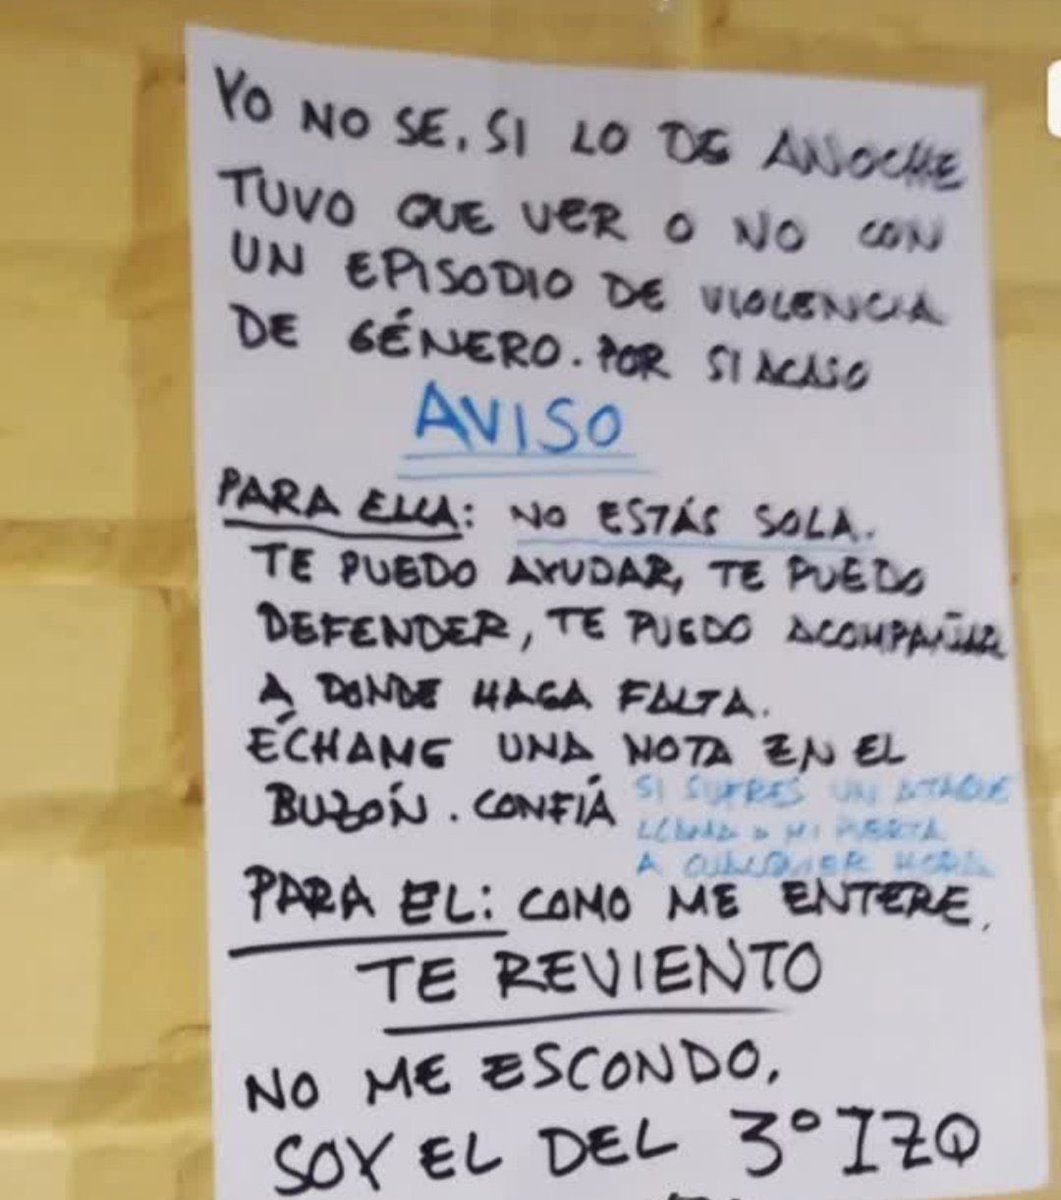 YO NO SE, SI LO DE ANOCHE
TUVO QUE VER O NO CON
UN EPISODIO DE VIOLENCIA
DE GÉNERO. POR SI ACASO
AVISO
PARA ELLA: NO ESTÁS SOLA.
TE PUEDO AYUDAR, TE PUEDO
DEFENDER, TE PUEDO ACOMPAÑAR
A DONDE HAGA FALTA.
ÉCHAME UNA NOTA EN EL
BUZÓN. CONFÍA
SI SUFRES UN ATAQUE
LLAMA A MI PUERTA
A CUALQUIER HORA
PARA EL: COMO ME ENTERE,
TE REVIENTO
NO ME ESCONDO,
SOY EL DEL 3º IZQ